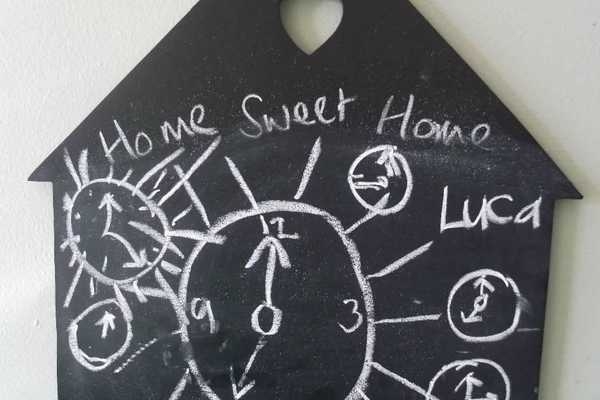 Home Sweet Home
Luca
12
9
3